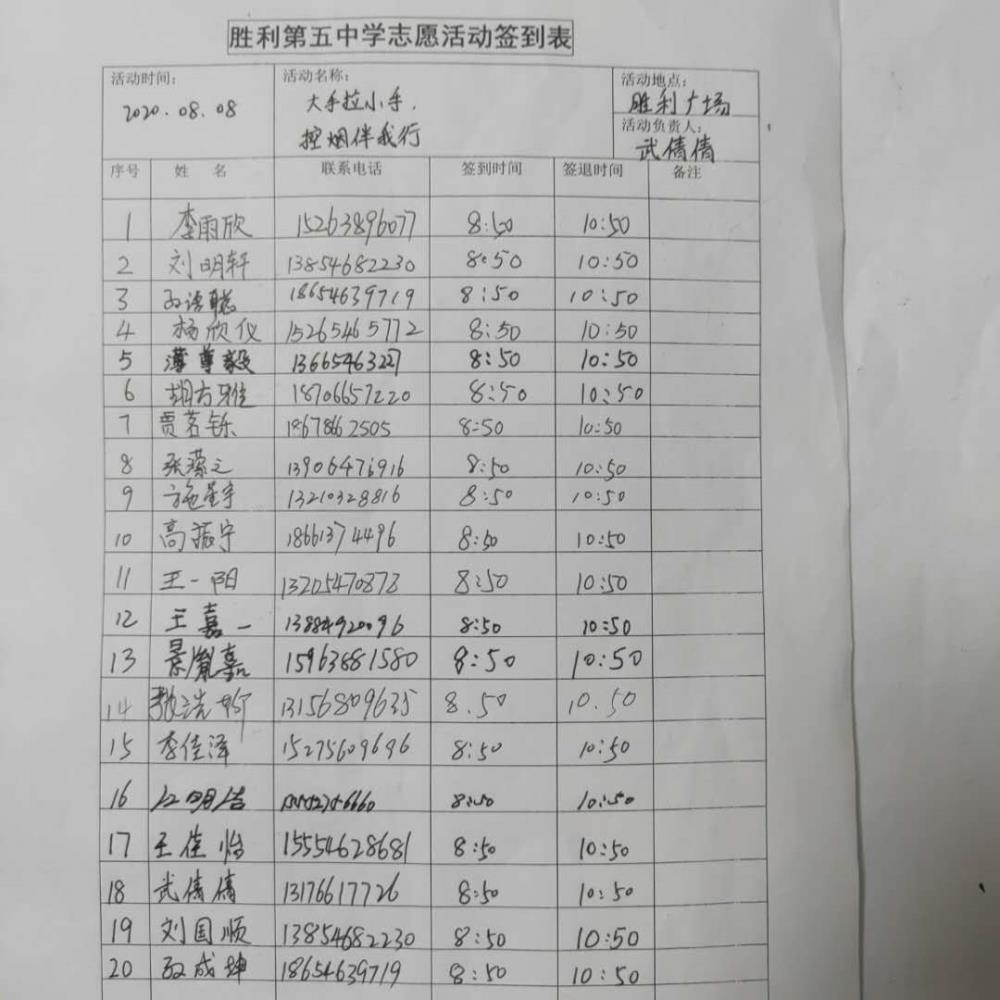 胜利第五中学志愿活动签到表
活动时间: 活动名称: 活动地点:
2020.08.08 大手拉小手. 胜利广场
控烟伴我行 活动负责人:
武倩倩
序号 姓 名 联系电话 签到时间 签退时间 备注
1 李雨欣 15263896077 8:50 10:50
2 刘明轩 13854682230 8:50 10:50
3 18654639719 8:50 10:50
4 杨欣仪 15265465772 8:50 10:50
5 薄尊毅 13665463227 8:50 10:50
6 胡方雅佳 18706657220 8:50 10:50
7 贾茗铄 8:50 10:50
8 13906476916 8:50 10:50
9 施星宇 13210328816 8:50 10:50
10 高振宁 18661374496 8:50 10:50
11 王一阳 13205470873 8:50 10:50
12 王嘉一 13884920096 8:50 10:50
13 景胤嘉 15963881580 8:50 10:50
14 13156809635 8.50 10.50
15 李佳泽 15275609696 8:50 10:50
16 8:50 10:50
17 王佳怡 15554628681 8:50 10:50
18 武倩倩 13176617726 8:50 10:50
19 刘国顺 13854682230 8:50 10:50
20 孙成坤 18654639719 8:50 10:50